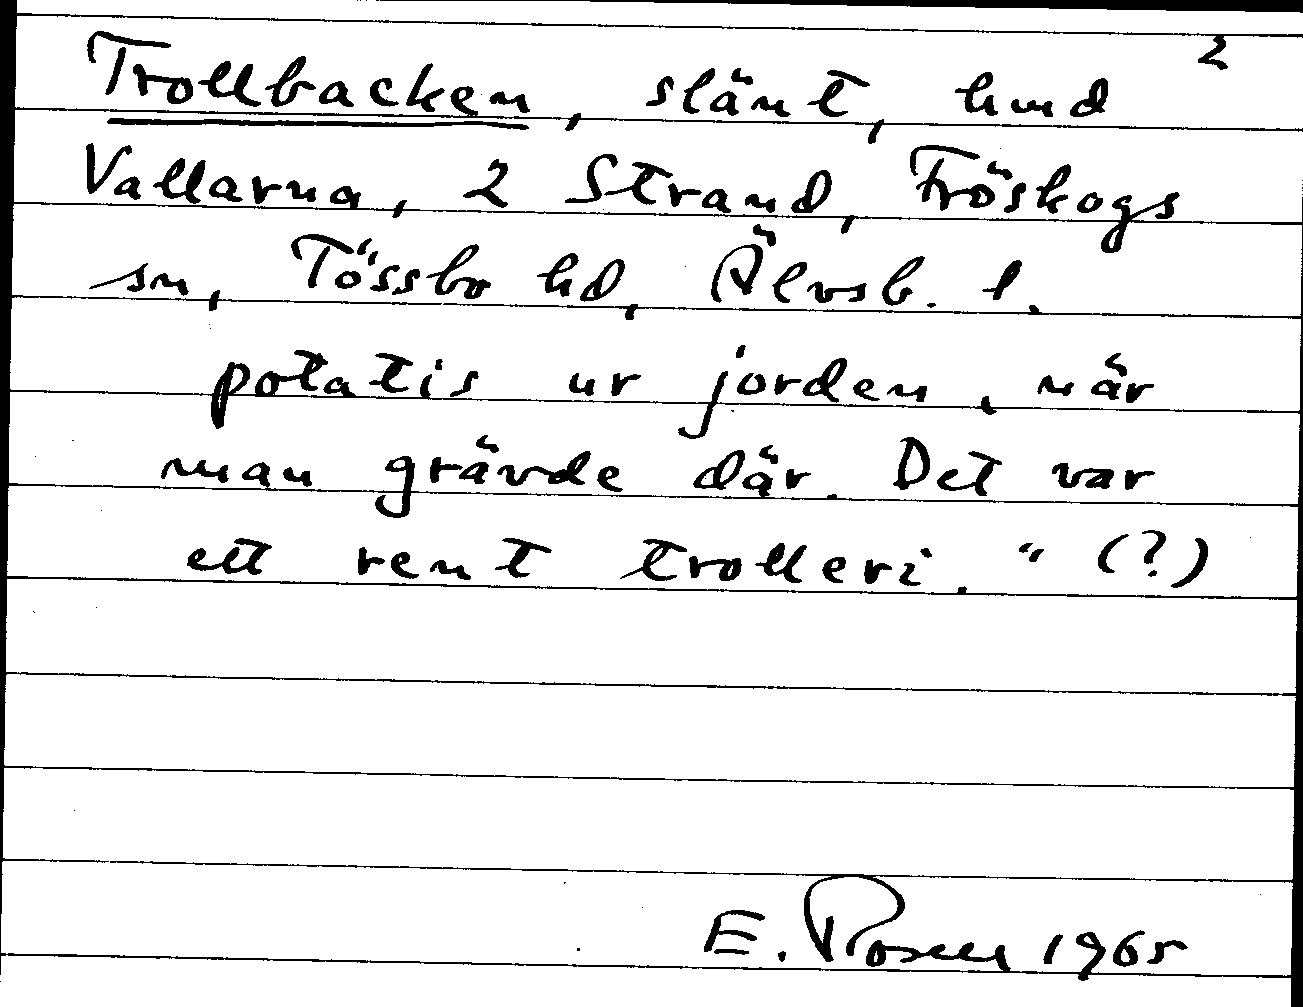 2
Trollbacken, slänt, hmd
Vallarna, 2 Strand, Fröskogs
sn, Tössbo hd, Älvsb. l.
potatis ur jorden, när
man grävde där. Det var
ett rent trolleri." (?)
E. Rosell 1965